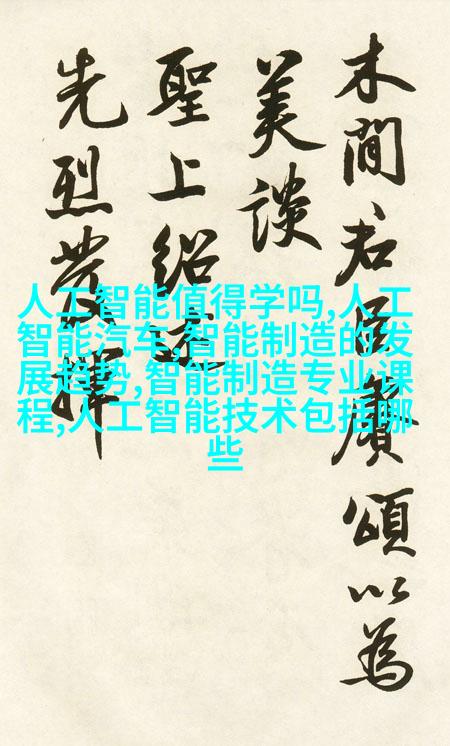 木間君臣賡頌以為
美談
聖上紹述
先烈發揮
人工智能值得学吗,人工
智能汽车,智能制造的发
展趋势,智能制造专业课
程,人工智能技术包括哪
些